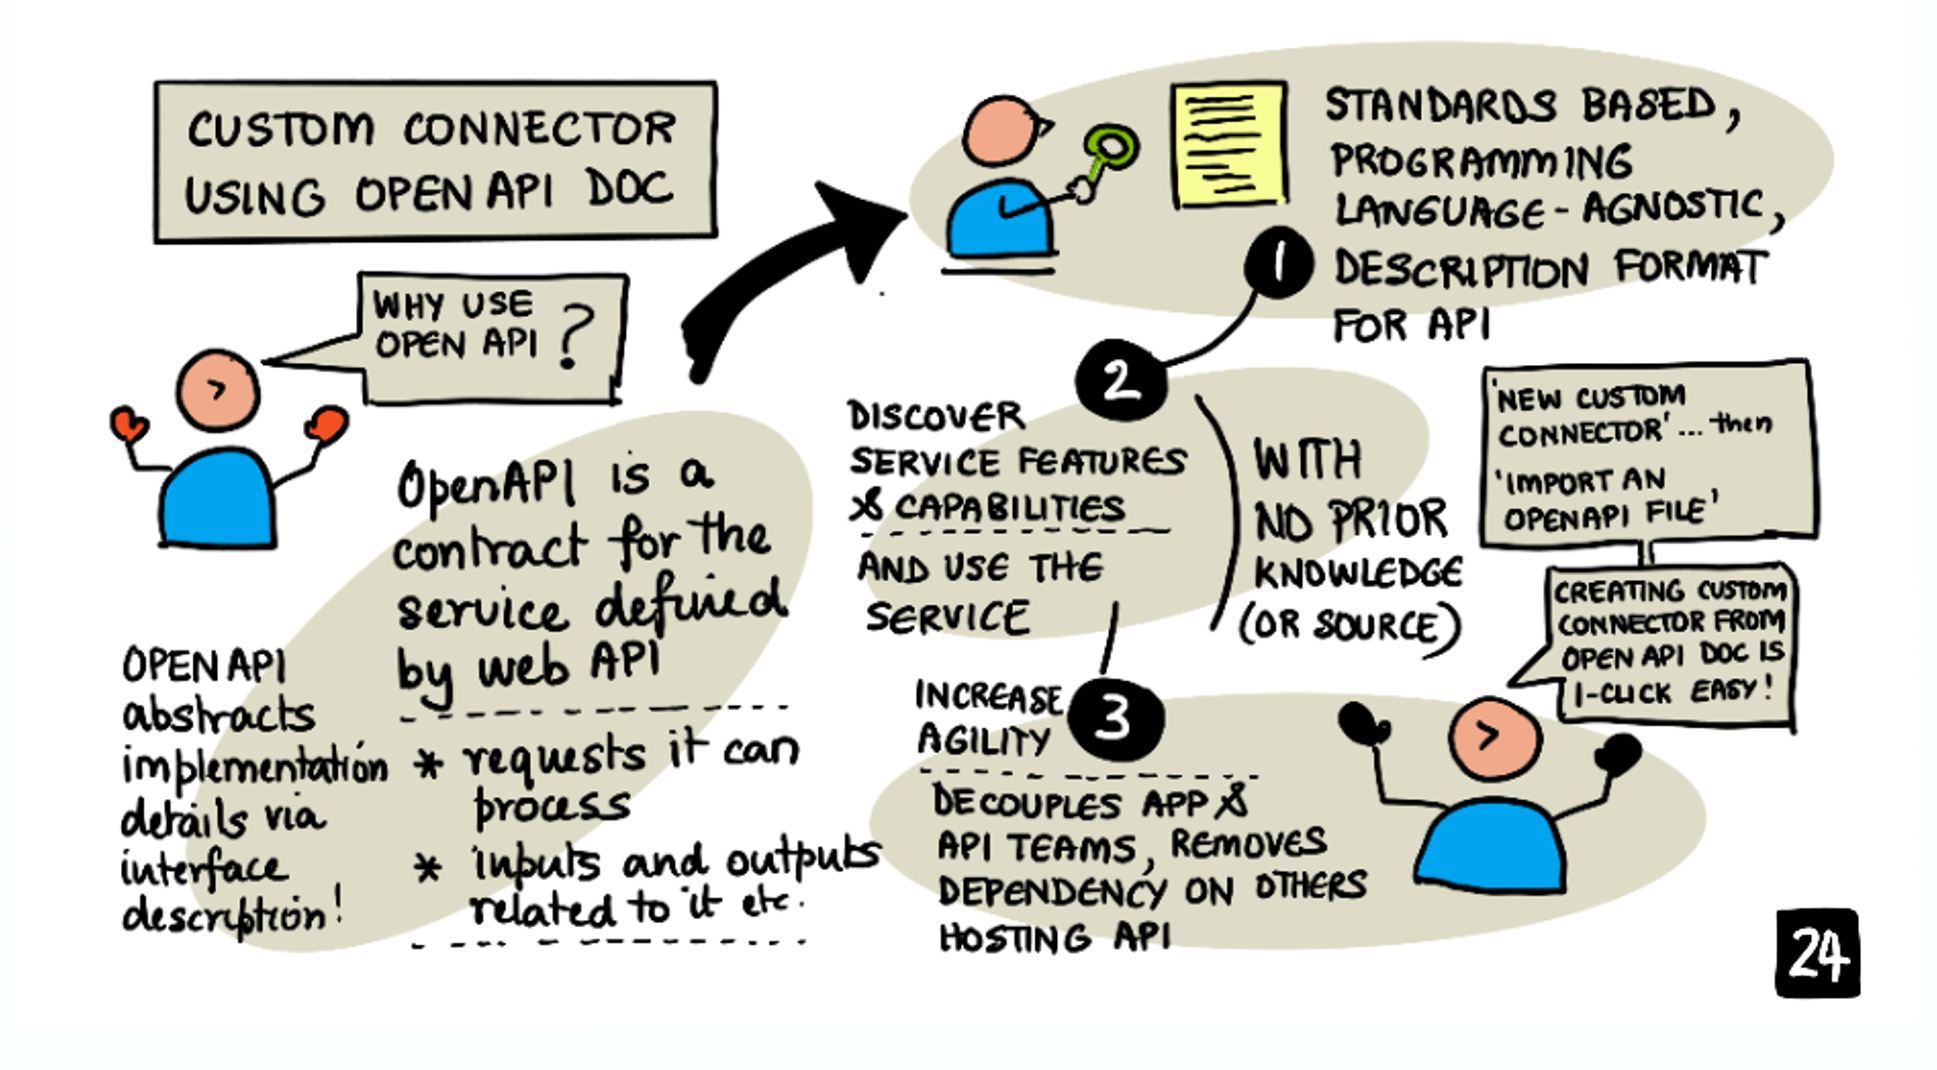 CUSTOM CONNECTOR
USING OPEN API DOC
WHY USE
OPEN API ?
OpenAPI is a
contract for the
service defined
by web API
* requests it can
process
* inputs and outputs
related to it etc.
OPEN API
abstracts
implementation
details via
interface
description!
1
STANDARDS BASED,
PROGRAMMING
LANGUAGE-AGNOSTIC,
DESCRIPTION FORMAT
FOR API
2
DISCOVER
SERVICE FEATURES
& CAPABILITIES
AND USE THE
SERVICE
WITH
NO PRIOR
KNOWLEDGE
(OR SOURCE)
3
INCREASE
AGILITY
DECOUPLES APP &
API TEAMS, REMOVES
DEPENDENCY ON OTHERS
HOSTING API
'NEW CUSTOM
CONNECTOR' ... then
'IMPORT AN
OPENAPI FILE'
CREATING CUSTOM
CONNECTOR FROM
OPEN API DOC IS
1-CLICK EASY!
24